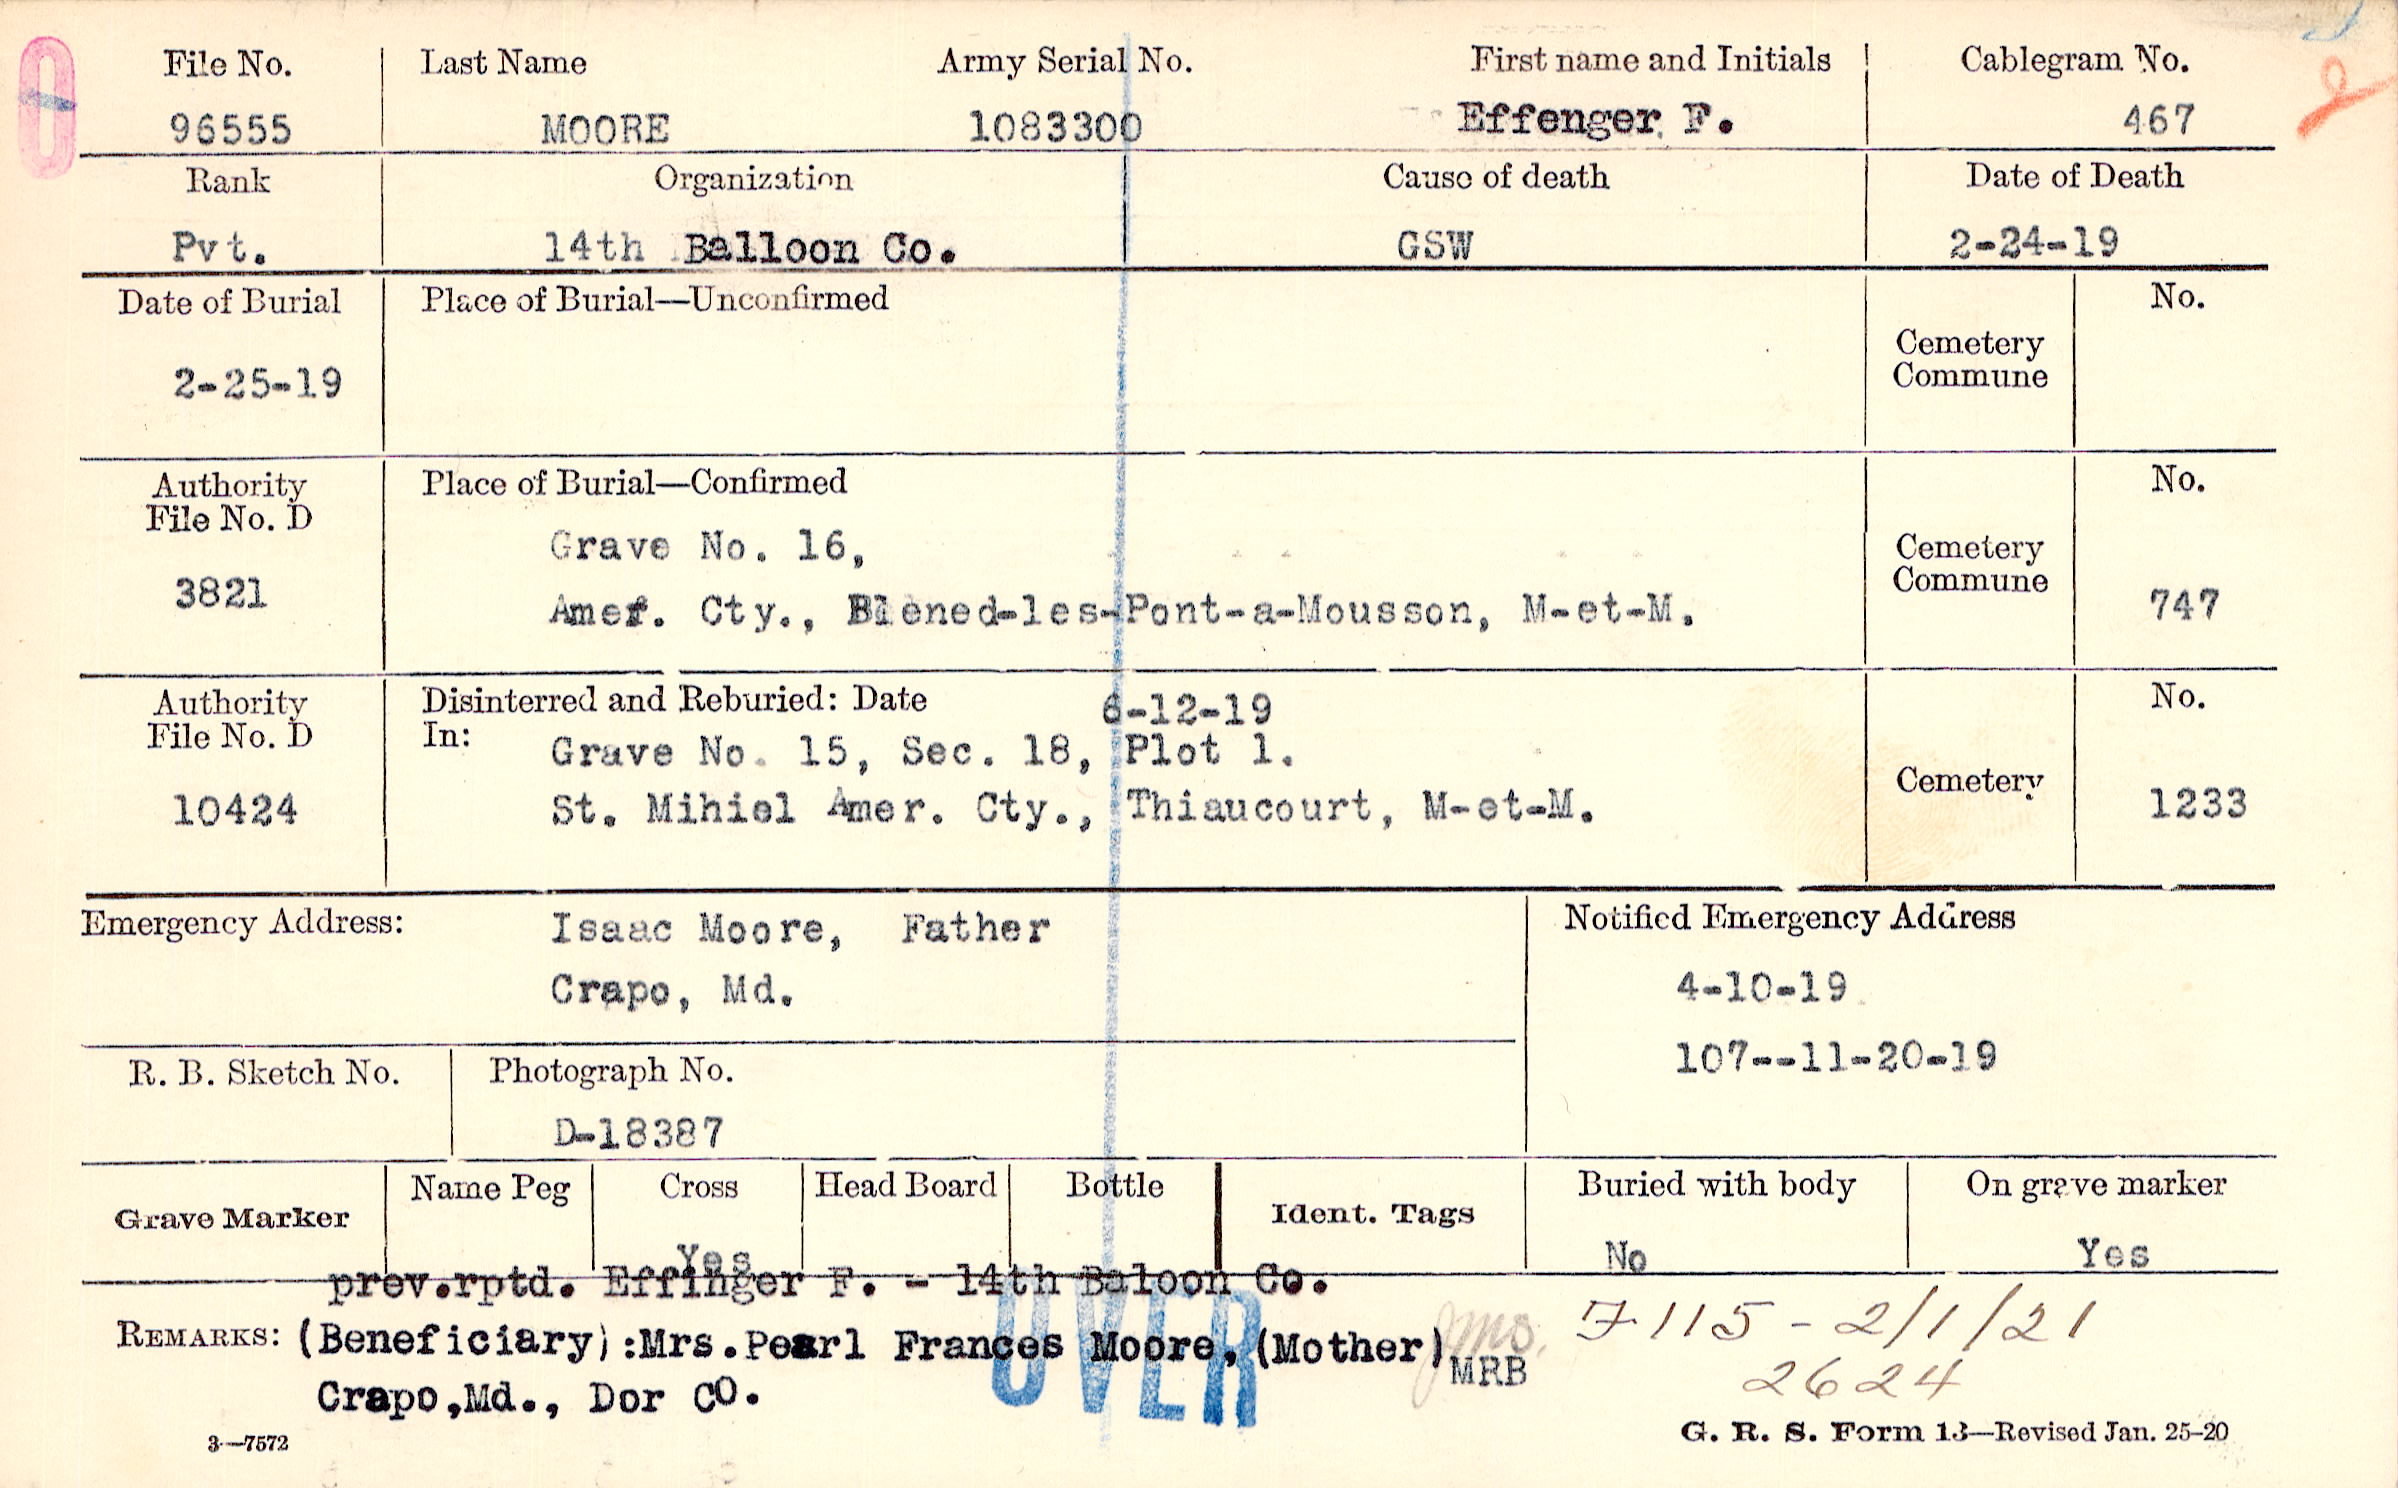 File No. Last Name Army Serial No. First name and Initials Cablegram No.
96555 MOORE 1083300 Effenger F. 467
Rank Organization Cause of death Date of Death
Pvt. 14th Balloon Co. GSW 2-24-19
Date of Burial Place of Burial—Unconfirmed No.
Cemetery
Commune
2-25-19
Authority Place of Burial—Confirmed No.
File No. D
Grave No. 16, Cemetery
Commune
3821 Amer. Cty., Blened-les-Pont-a-Mousson, M-et-M. 747
Authority Disinterred and Reburied: Date 6-12-19 No.
File No. D In: Grave No. 15, Sec. 18, Plot 1.
Cemetery
10424 St. Mihiel Amer. Cty., Thiaucourt, M-et-M. 1233
Emergency Address: Isaac Moore, Father Notified Emergency Address
Crapo, Md. 4-10-19
107--11-20-19
R. B. Sketch No. Photograph No.
D-18387
Name Peg Cross Head Board Bottle Buried with body On grave marker
Grave Marker Ident. Tags
Yes No Yes
prev.rptd. Effinger F. - 14th Baloon Co.
OVER
REMARKS: (Beneficiary):Mrs.Pearl Frances Moore,(Mother) MRB
7115 - 2/1/21
2624
Crapo,Md., Dor CO.
3—7572 G. R. S. Form 13—Revised Jan. 25-20